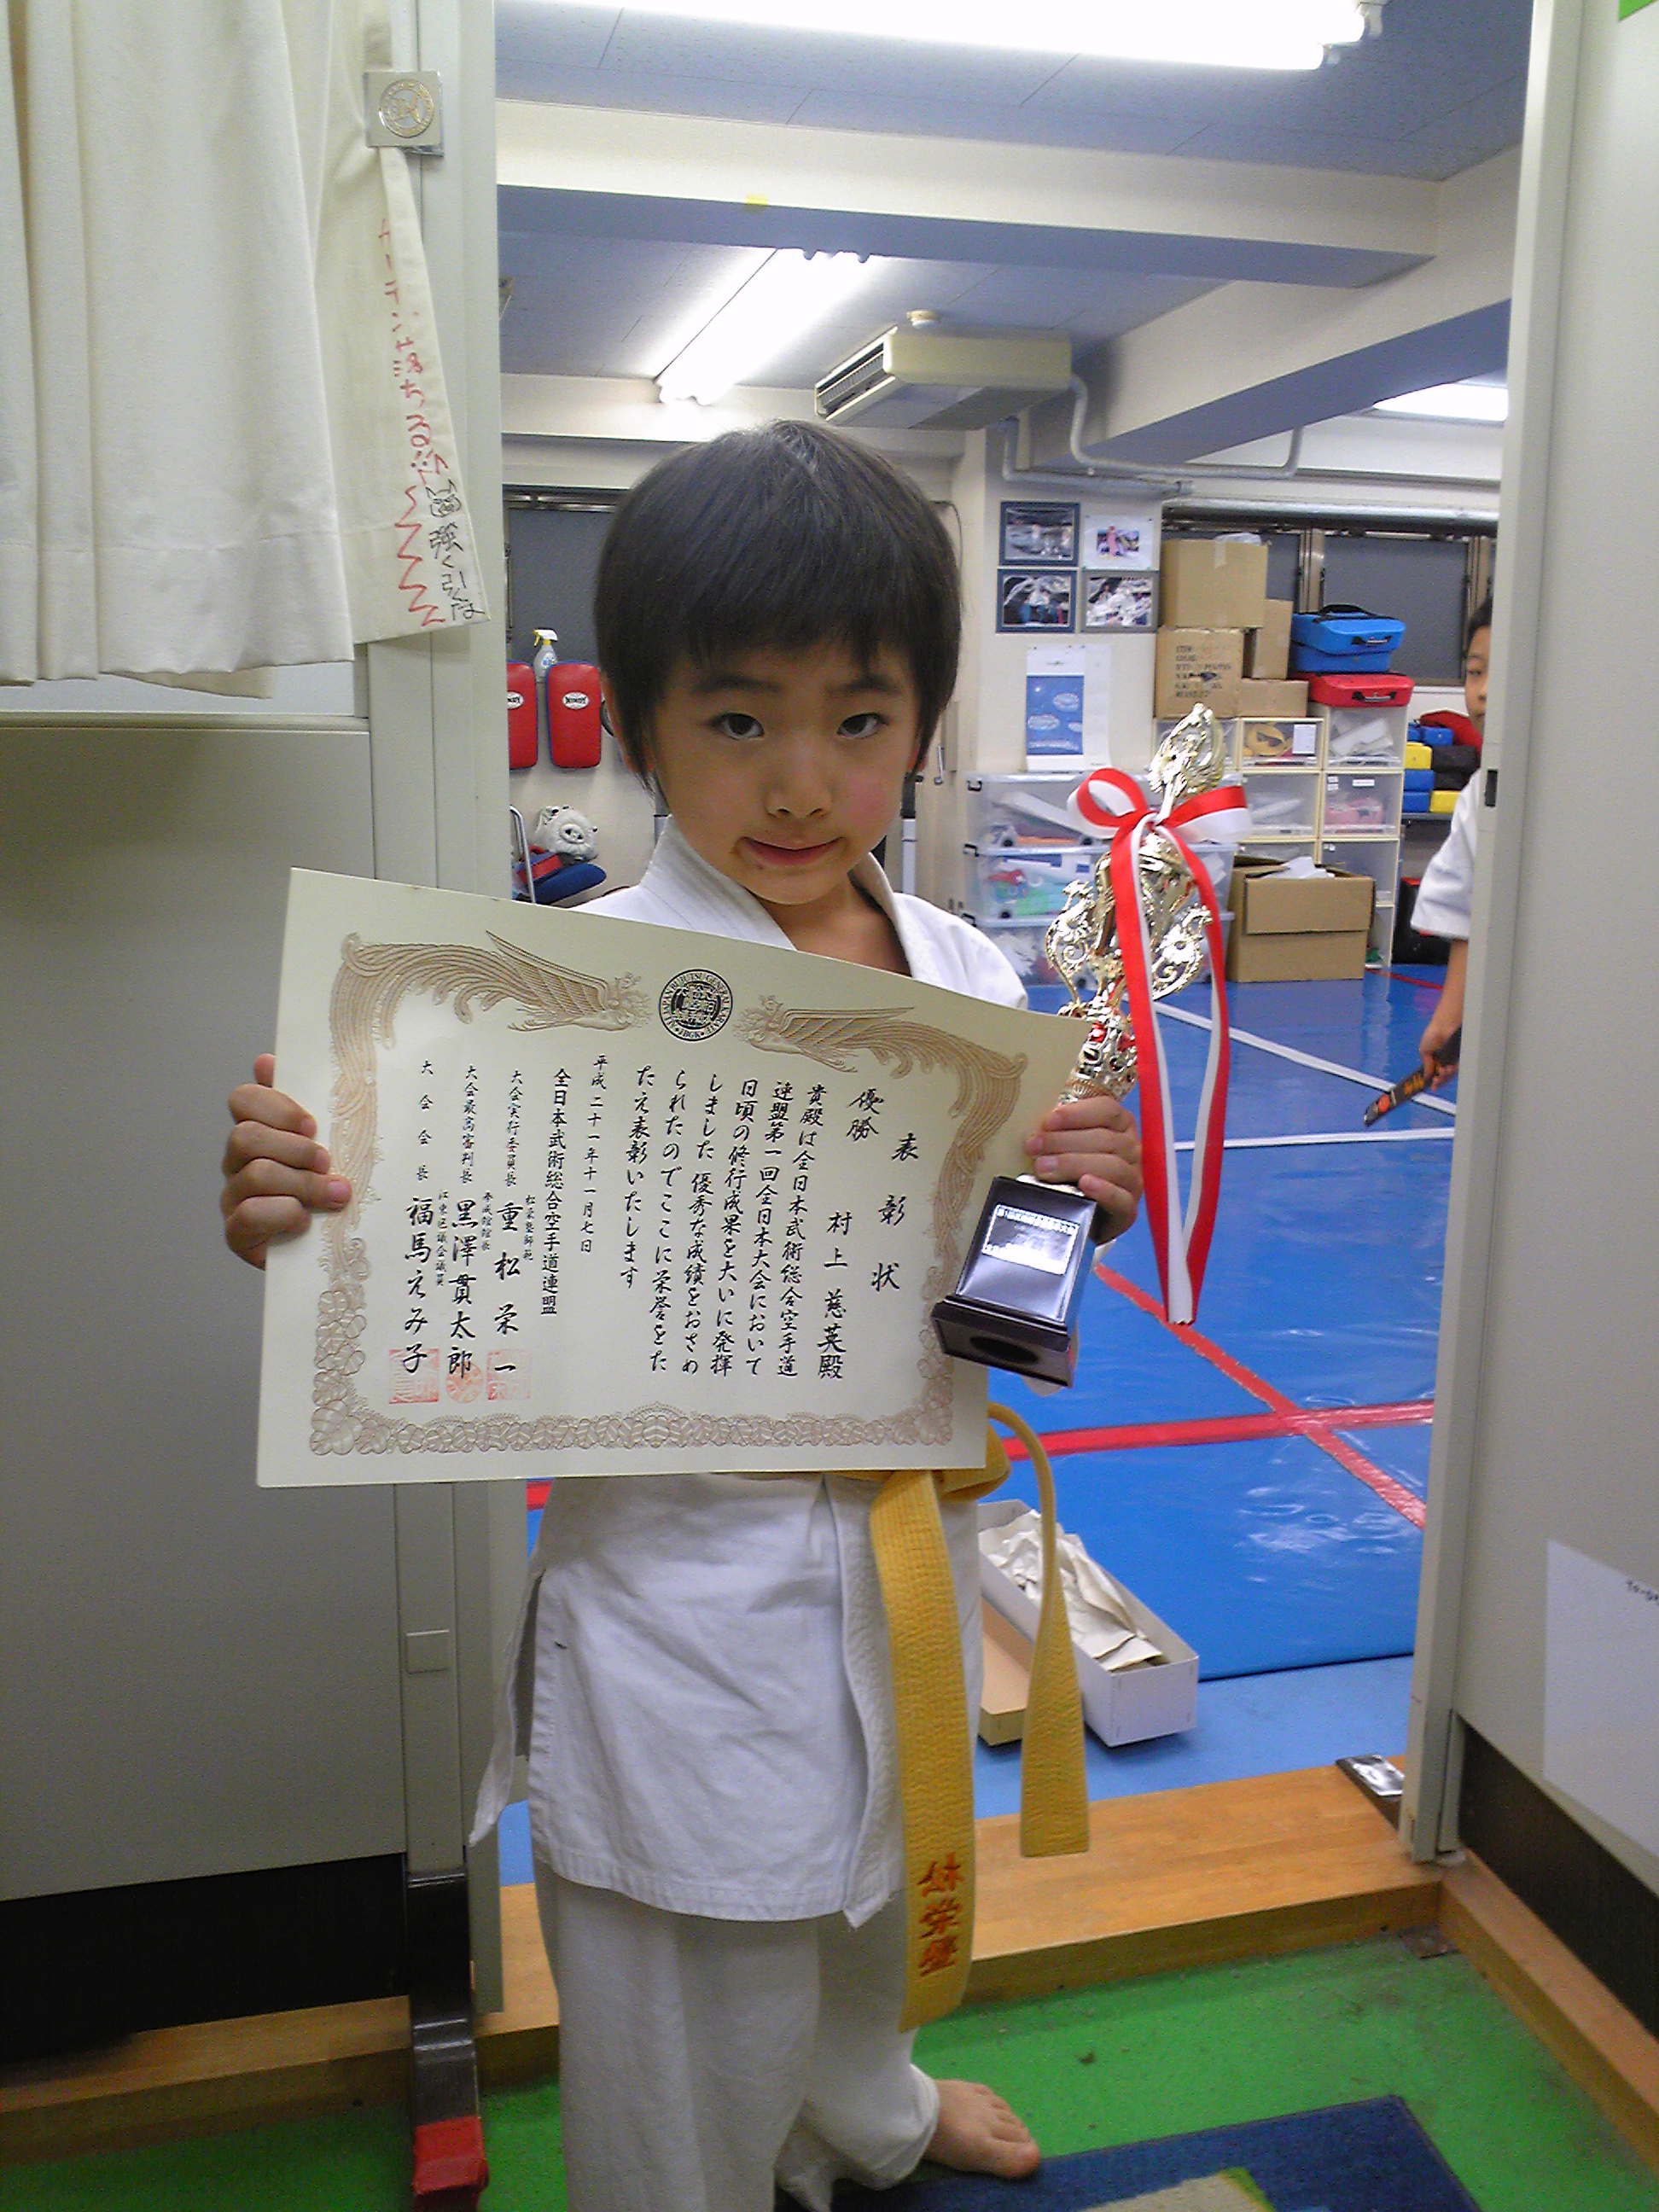 表彰状
優勝
村上慈英殿
貴殿は全日本武術総合空手道
連盟第一回全日本大会において
日頃の修行成果を大いに発揮
しました 優秀な成績をおさめ
られたのでここに栄誉をた
たえ表彰いたします
平成二十一年十一月七日
全日本武術総合空手道連盟
大会実行委員長
松栄塾師範
重松栄一
大会最高審判長
本成館館長
黒澤貫太郎
大会会長
江東区議会議員
福馬えみ子
カーテンが落ちる
強く引くな
松栄塾
WINDY